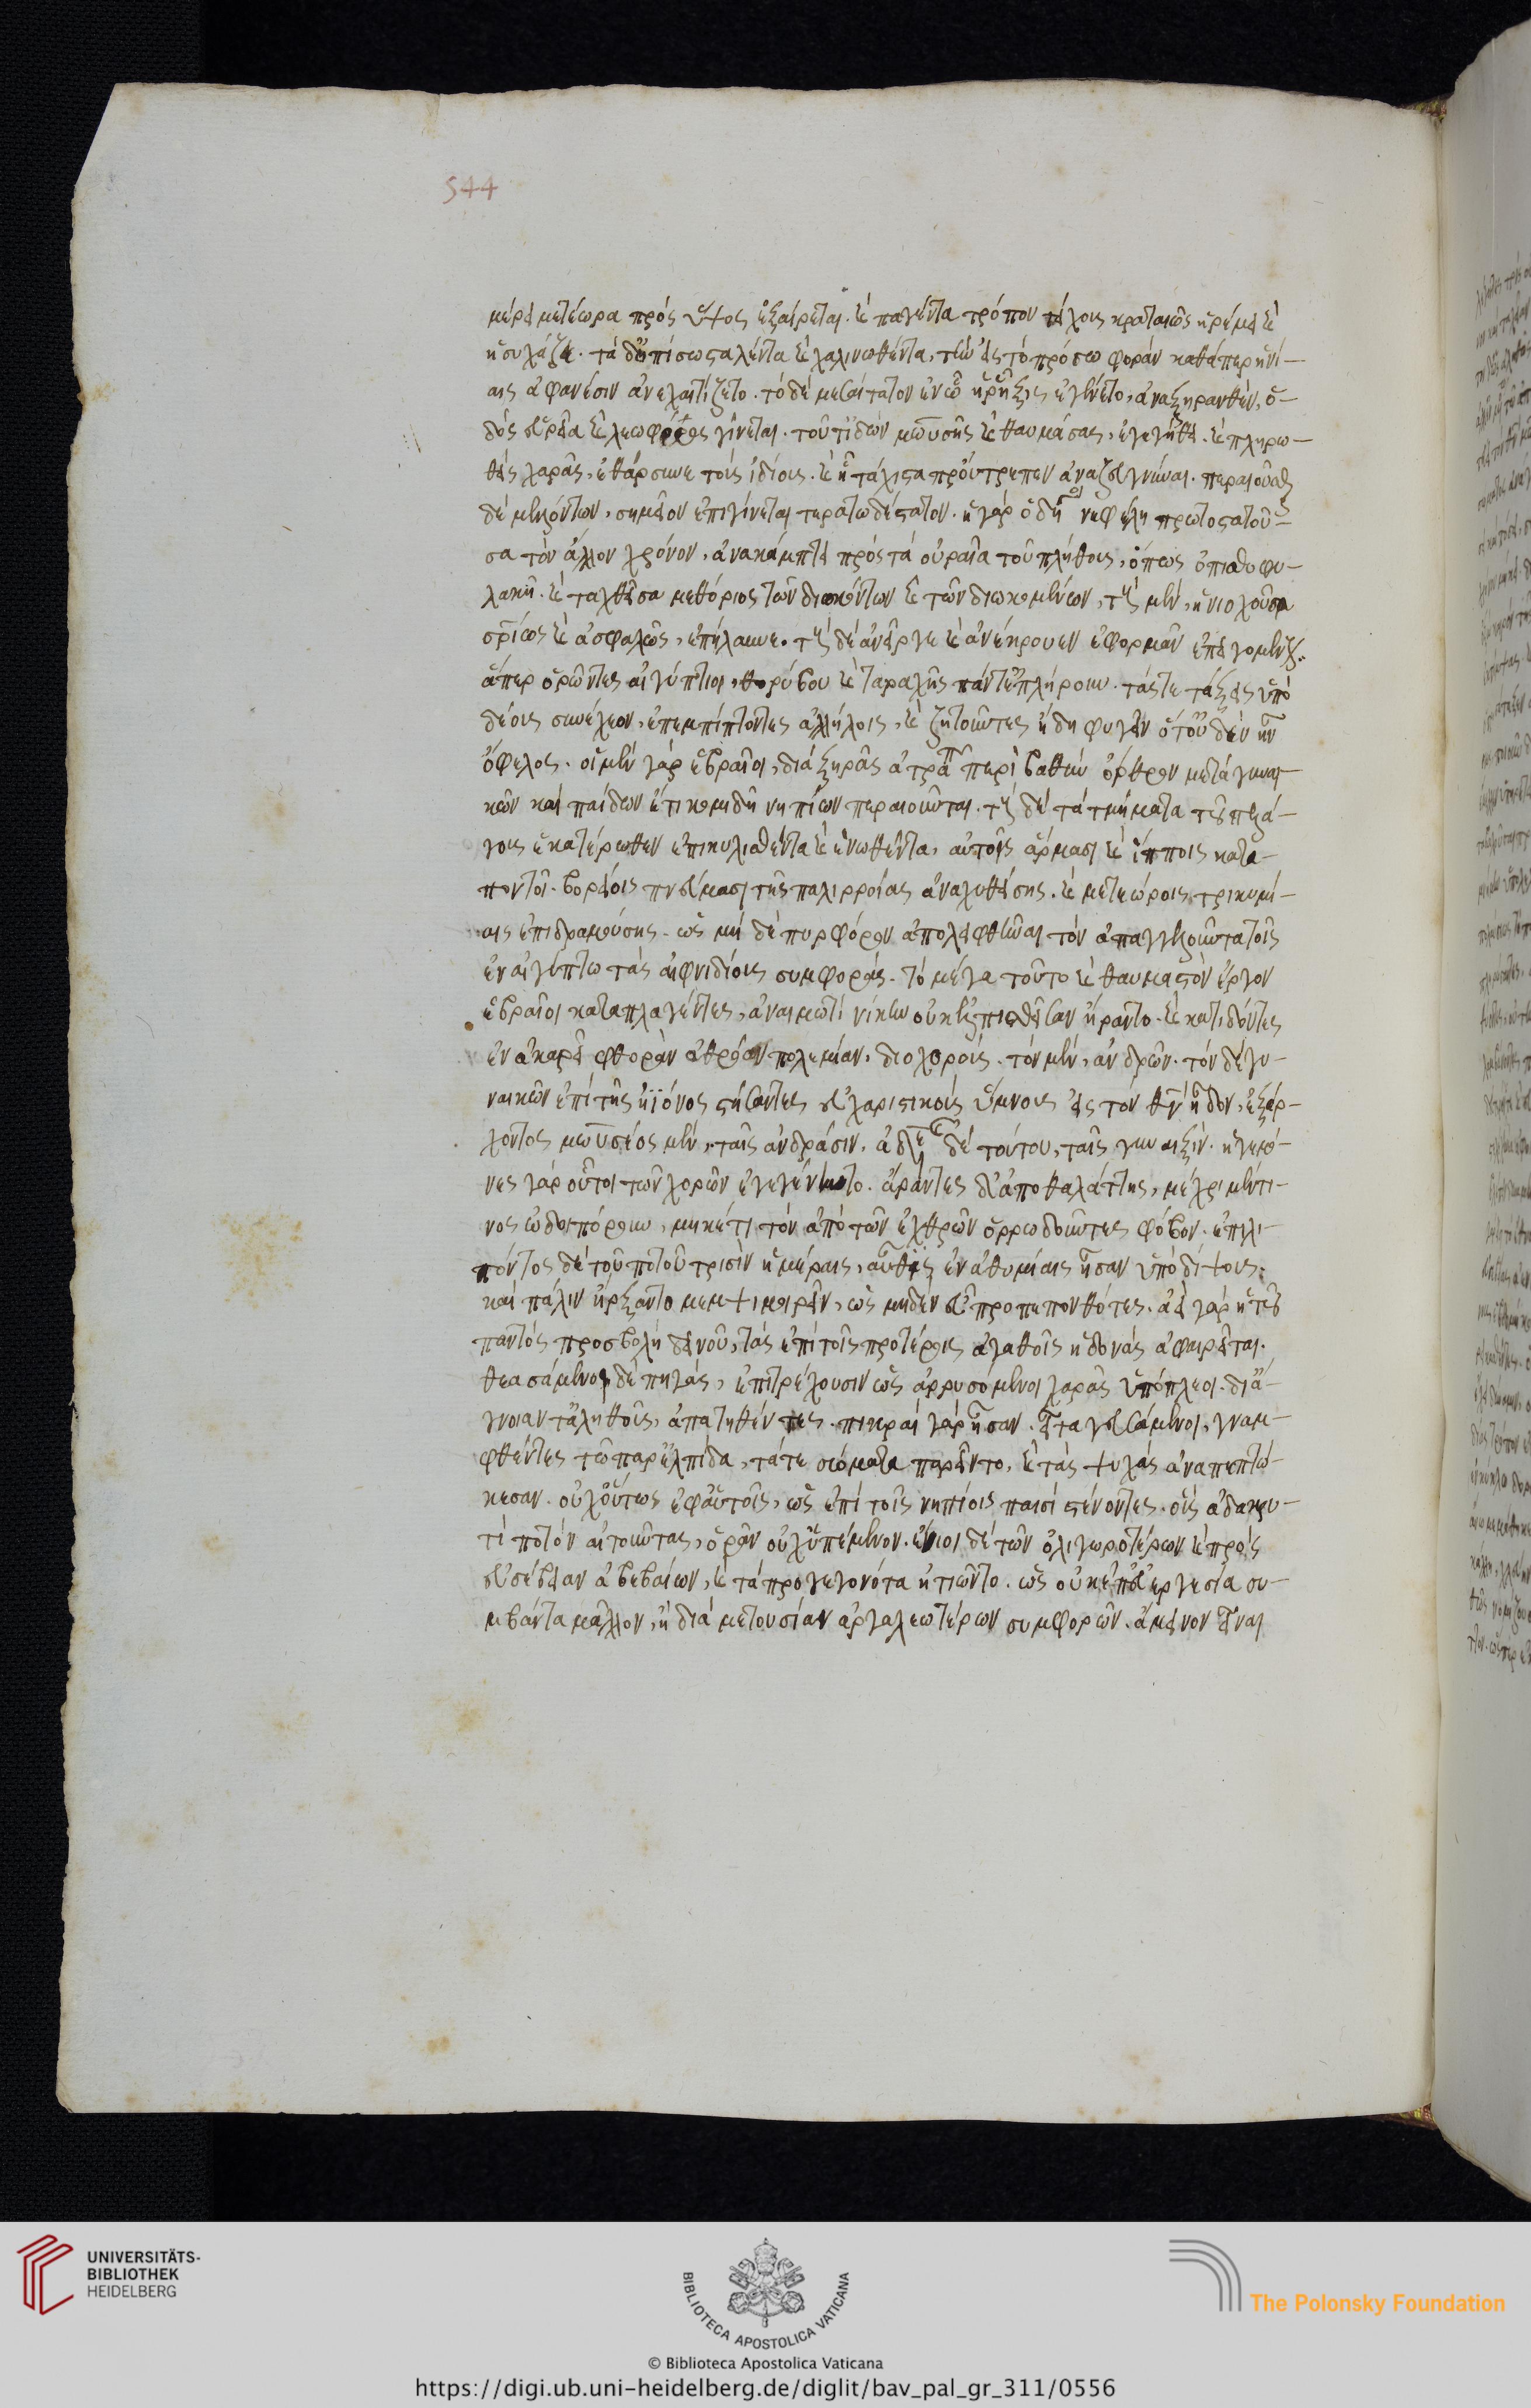 544
μέρη μετέωρα πρὸς ὕψος ἐξαίρεται. καὶ παγέντα τρόπον τείχους κραταιῶς ἠρέμει καὶ
ἡσυχάζει. τὰ δ' ὀπίσω σταλέντα καὶ χαλινωθέντα, τὴν εἰς τὸ πρόσω φορὰν καθάπερ ἡνί-
αις ἀφανέσιν ἀνεχαιτίζετο. τὸ δὲ μεσαίτατον ἐν ᾧ ἡ ῥῆξις ἐγένετο, ἀναξηρανθὲν, ὁ-
δὸς εὐρεῖα καὶ λεωφόρος γίνεται. τοῦτ' ἰδὼν μωυσῆς καὶ θαυμάσας, ἐγεγήθει. καὶ πληρω-
θεὶς χαρᾶς, ἐθάρσυνε τοὺς ἰδίους. καὶ ᾗ τάχιστα προὔτρεπεν ἀναζευγνύναι. περαιοῦσθαι
δὲ μελλόντων, σημεῖον ἐπιγίνεται τερατωδέστατον. ἡ γὰρ ὁδηγὸς νεφέλη πρωτοστατοῦ-
σα τὸν ἄλλον χρόνον, ἀνακάμπτει πρὸς τὰ οὐραῖα τοῦ πλήθους, ὅπως ὀπισθοφυ-
λακῇ. καὶ ταχθεῖσα μεθόριος τῶν διωκόντων καὶ τῶν διωκομένων, τοὺς μὲν, ἡνιοχοῦσα
σρίως καὶ ἀσφαλῶς, ἐπήλαυνε. τοὺς δὲ ἀνεῖργε καὶ ἀνέκρουεν ἐφορμᾶν ἐπειγομένους.
ἅπερ ὁρῶντες αἰγύπτιοι, θορύβου καὶ ταραχῆς πάντ' ἐπλήρουν. τάς τε τάξεις ὑπὸ
δέους συνέχεον, ἐπεμπίπτοντες ἀλλήλοις, καὶ ζητοῦντες ἤδη φυγεῖν ὅτ' οὐδὲν ἦν
ὄφελος. οἱ μὲν γὰρ ἑβραῖοι, διὰ ξηρᾶς ἀτραποῦ περὶ βαθὺν ὄρθρον μετὰ γυναι-
κῶν καὶ παίδων ἔτι κομιδῇ νηπίων περαιοῦνται. τοὺς δὲ τὰ τμήματα τοῦ πελά-
γους ἑκατέρωθεν ἐπικυλισθέντα καὶ ἑνωθέντα, αὐτοῖς ἅρμασι καὶ ἵπποις κατα-
ποντοῖ. βορείοις πνεύμασι τῆς παλιρροίας ἀναχυθείσης. καὶ μετεώροις τρικυμί-
αις ἐπιδραμούσης. ὡς μηδὲ πυρφόρον ἀπολειφθῆναι τὸν ἀπαγγελοῦντα τοῖς
ἐν αἰγύπτω τὰς αἰφνιδίους συμφοράς. τὸ μέγα τοῦτο καὶ θαυμαστὸν ἔργον
ἑβραῖοι καταπλαγέντες, ἀναιμωτὶ νίκην οὐκ ἐλπισθεῖσαν ἤραντο. καὶ κατιδόντες
ἐν ἀκαρεῖ φθορὰν ἀθρόαν πολεμίων, δύο χοροὺς. τὸν μὲν, ἀνδρῶν. τὸν δὲ γυ-
ναικῶν ἐπὶ τῆς ἠϊόνος στήσαντες εὐχαριστικοὺς ὕμνους εἰς τὸν θν ᾖδον, ἐξάρ-
χοντος μωυσέος μὲν, τοῖς ἀνδράσιν. ἀδελφῆς δὲ τούτου, ταῖς γυναιξίν. ἡγεμό-
νες γὰρ οὗτοι τῶν χορῶν ἐγεγένηντο. ἄραντες δ' ἀπὸ θαλάττης, μέχρι μέν τι-
νος ὡδοιπόρουν, μηκέτι τὸν ἀπὸ τῶν ἐχθρῶν ὀρρωδοῦντες φόβον. ἐπιλι-
πόντος δὲ τοῦ ποτοῦ τρισὶν ἡμέραις, αὖθις ἐν ἀθυμίαις ἦσαν ὑπὸ δίψους.
καὶ πάλιν ἤρξαντο μεμψιμοιρεῖν, ὡς μηδὲν εὖ προπεπονθότες. ἀεὶ γὰρ ἡ τοῦ
παντὸς προσβολὴ δεινοῦ, τὰς ἐπὶ τοῖς προτέροις ἀγαθοῖς ἡδονὰς ἀφαιρεῖται.
θεασάμενοι δὲ πηγάς, ἐπιτρέχουσιν ὡς ἀρρυσόμενοι χαρᾶς ὑπόπλεοι. δι' ἄ-
γνοιαν τἀληθοῦς, ἀπατηθέντες. πικραὶ γὰρ ἦσαν. εἶτα γευσάμενοι, γναμ-
φθέντες τῷ παρ' ἐλπίδα, τά τε σώματα παρεῖντο, καὶ τὰς ψυχὰς ἀναπεπτώ-
κεσαν. οὐχ οὕτως ἐφ' αὑτοῖς, ὡς ἐπὶ τοῖς νηπίοις παισὶ στένοντες. οὓς ἀδακρυ-
τὶ ποτὸν αἰτοῦντας, ὁρᾶν οὐχ ὑπέμενον. ἔνιοι δὲ τῶν ὀλιγωροτέρων καὶ πρὸς
εὐσέβειαν ἀβεβαίων, καὶ τὰ προγεγονότα ᾐτιῶντο. ὡς οὐκ ἐπ' εὐεργεσία συ-
μβάντα μᾶλλον, ἢ διὰ μετουσίαν ἀργαλεωτέρων συμφορῶν. ἄμεινον εἶναι
UNIVERSITÄTS-
BIBLIOTHEK
HEIDELBERG
BIBLIOTECA APOSTOLICA VATICANA
The Polonsky Foundation
© Biblioteca Apostolica Vaticana
https://digi.ub.uni-heidelberg.de/diglit/bav_pal_gr_311/0556